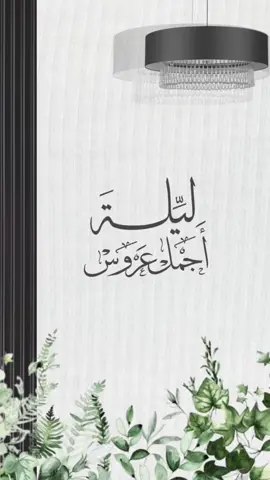 ليلة
أجمل عروس